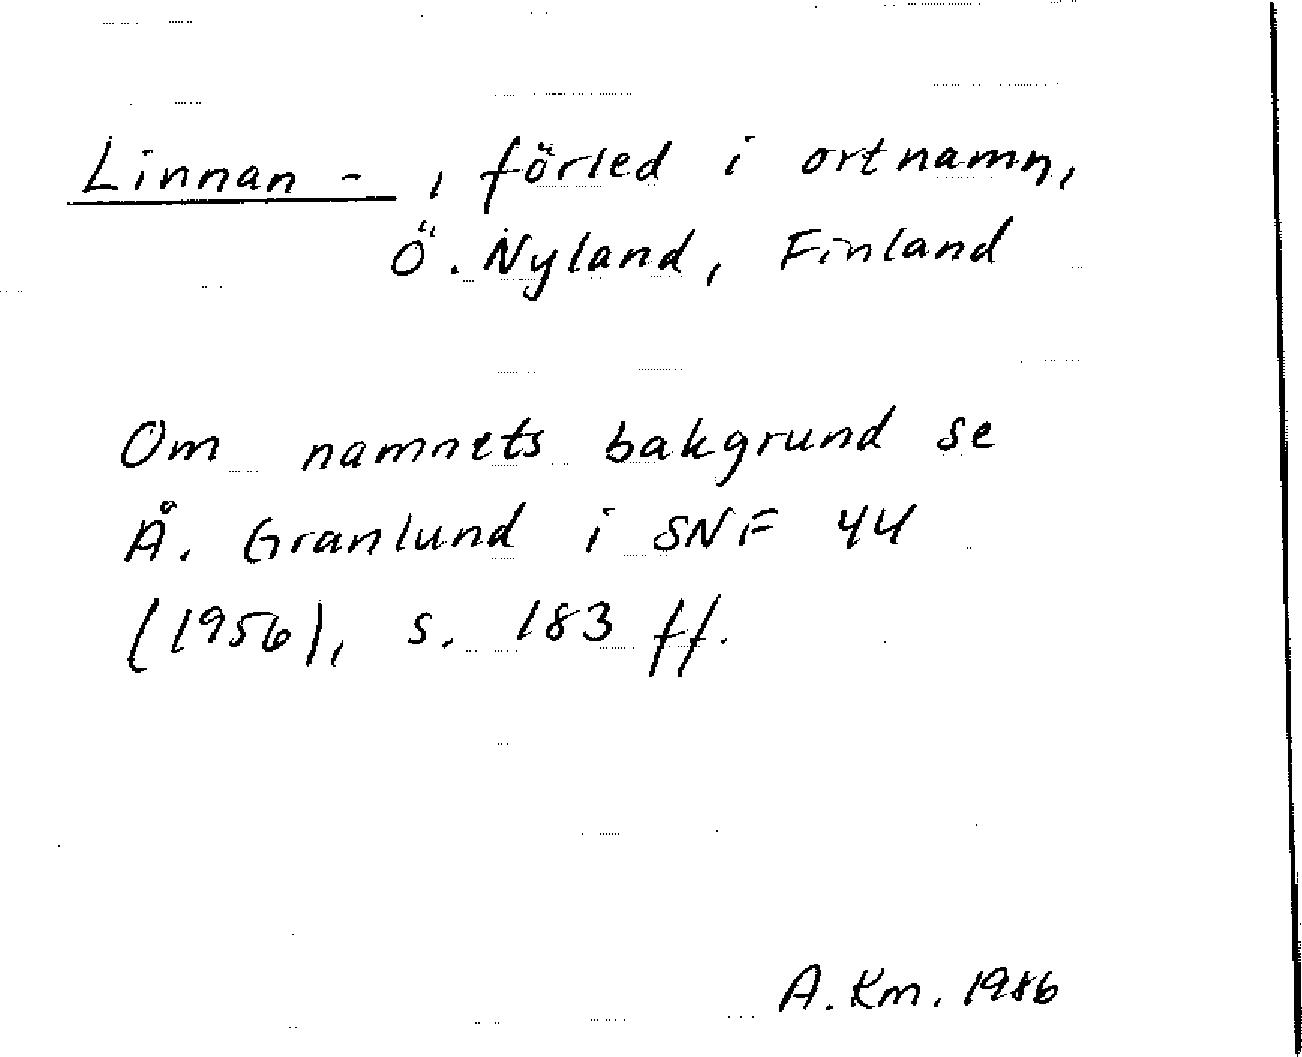 Linnan -, förled i ortnamn,
Ö. Nyland, Finland
Om namnets bakgrund se
Å. Granlund i SNF 44
(1956), s. 183 ff.
A. Km. 1986